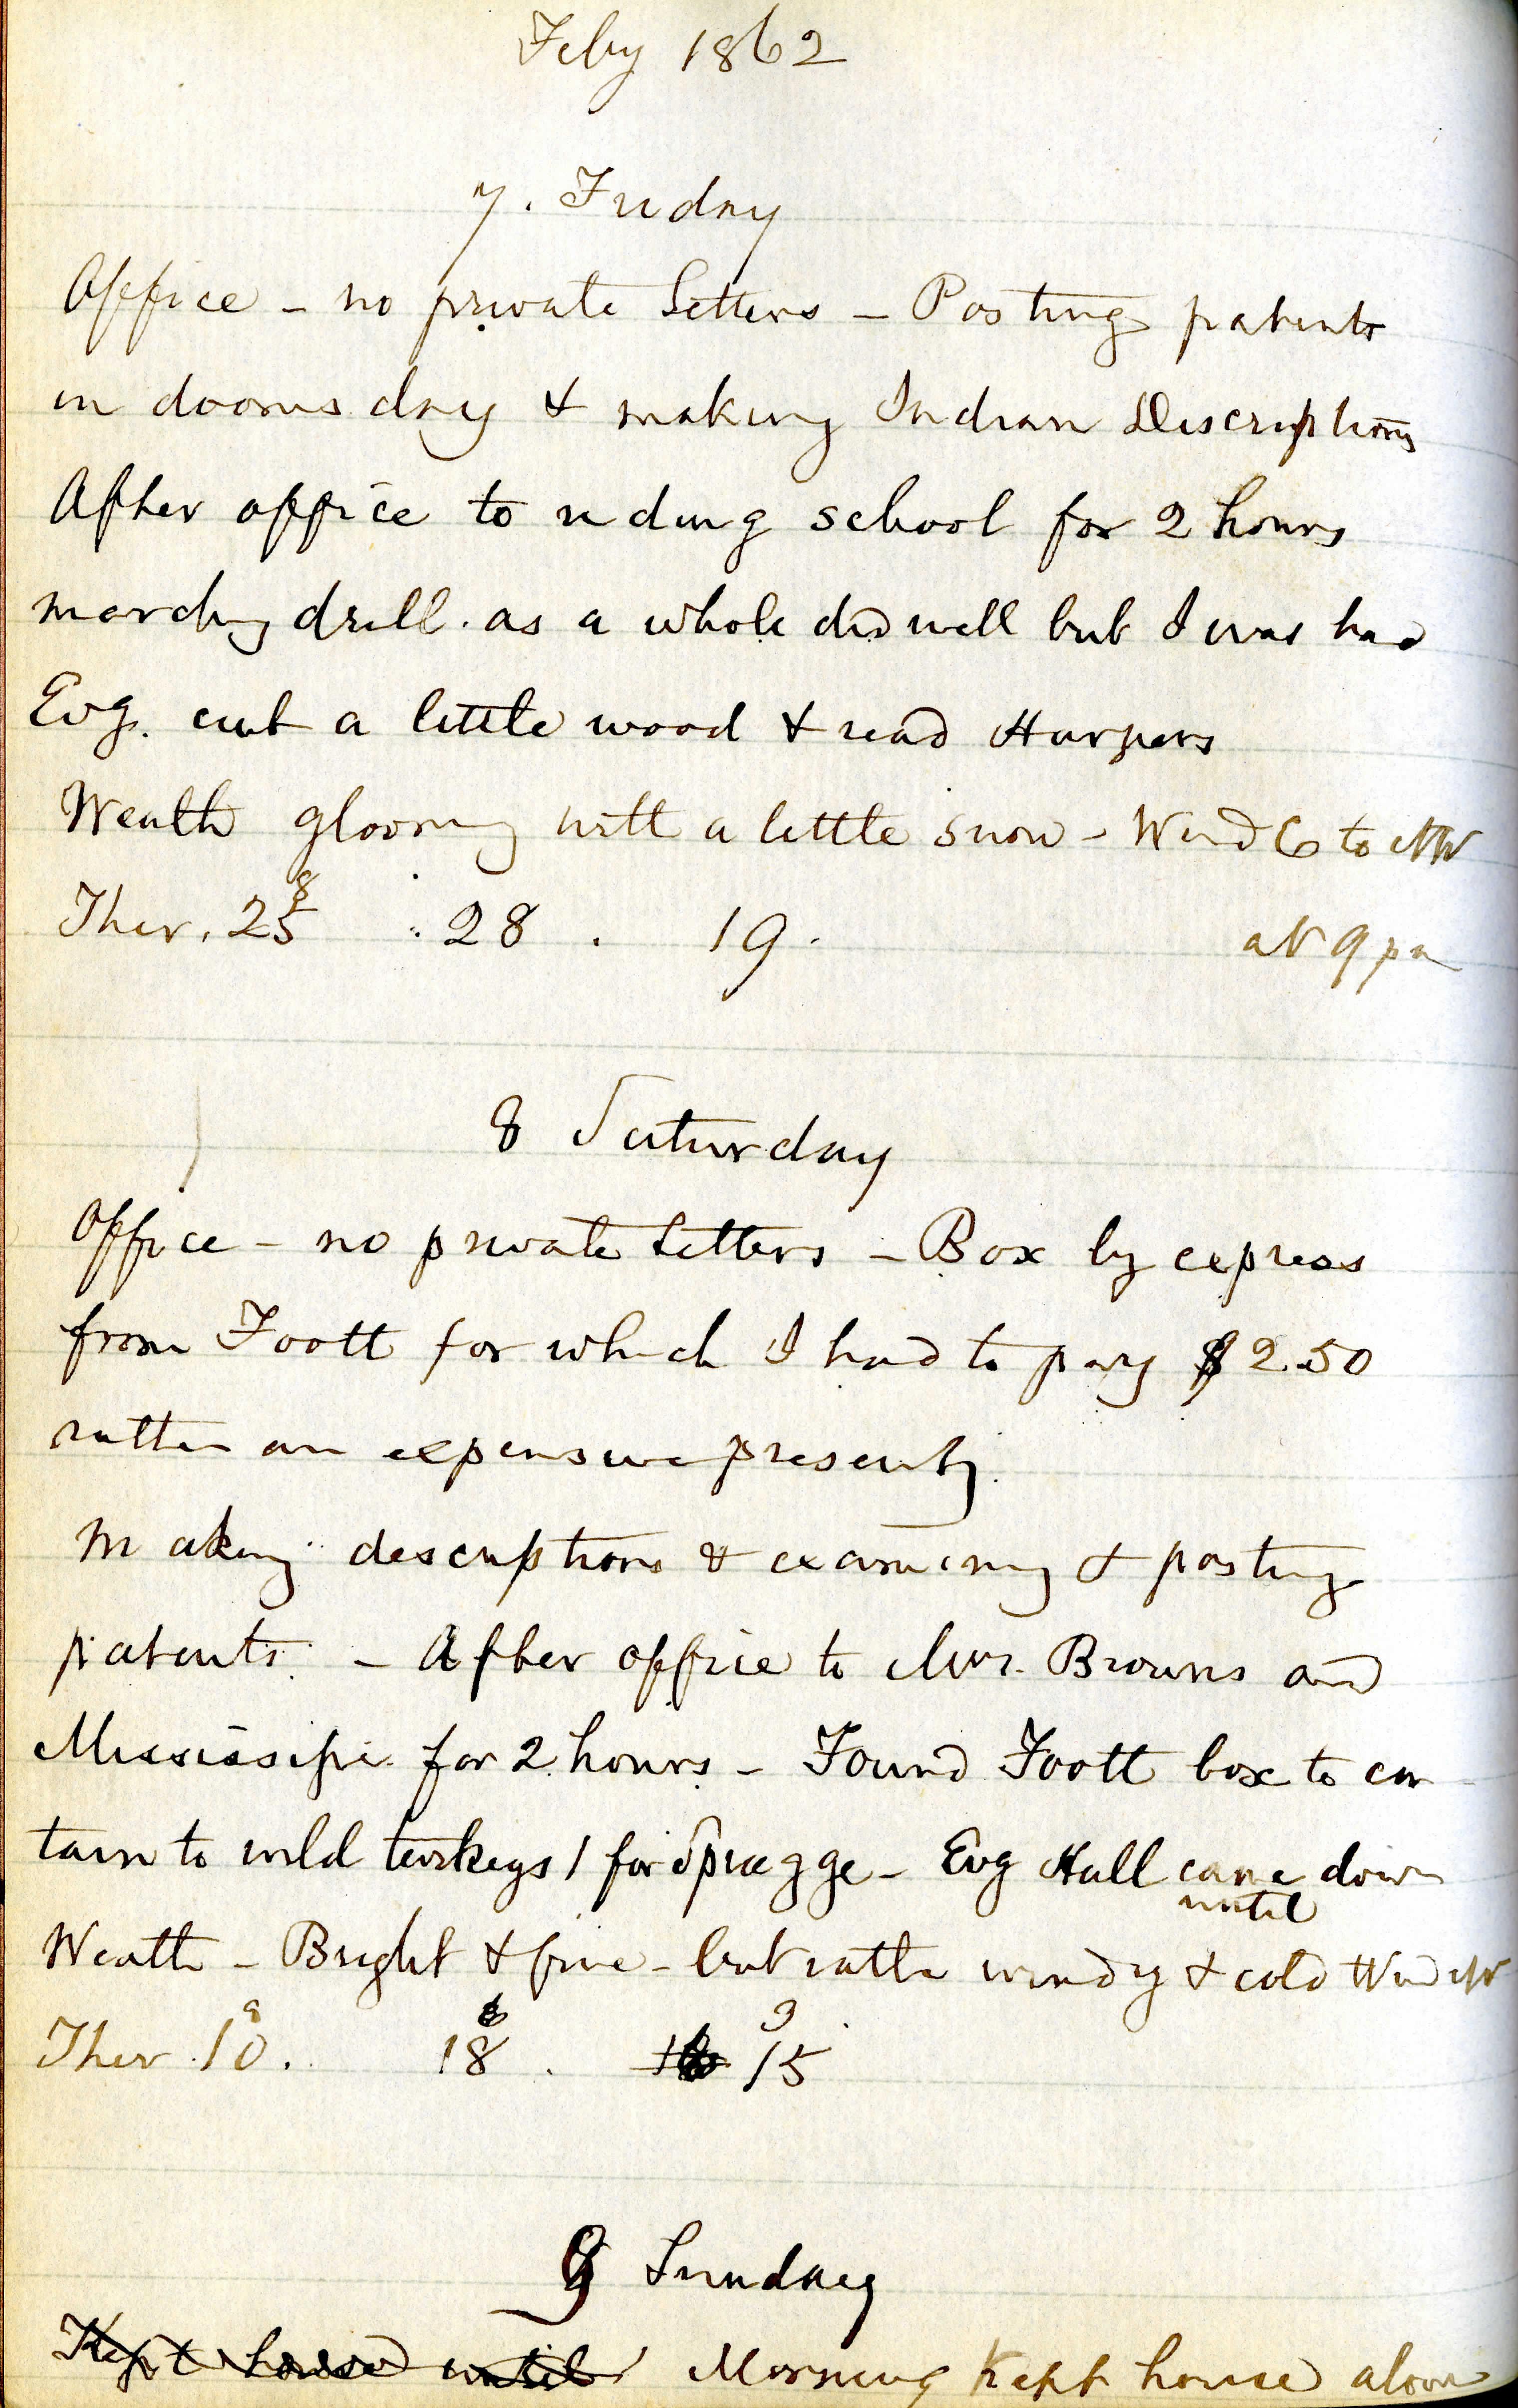 Feby 1862
7. Friday
Office - no private letters - Posting patents
in doomsday & making Indian Descriptions
After office to riding school for 2 hours
marching drill. as a whole did well but I was bad
Evg. cut a little wood & read Harpers
Weath gloomy with a little snow - Wind to NW
8
Ther. 25 . 28 . 19. at 9 pm
8 Saturday
Office - no private letters - Box by express
from Foott for which I had to pay $2.50
rather an expensive present.
Making descriptions & examining & posting
patents - After office to Mrs. Browns and
Mississipi for 2 hours - Found Foott box to con
tain to wild turkeys 1 for Spragge - Evg Hall came down
until
Weath - Bright & fine - but rather windy & cold Wind W
8 9
Ther. 10. 18 . 15
9 Sunday
Kept house until Morning Kept house alone